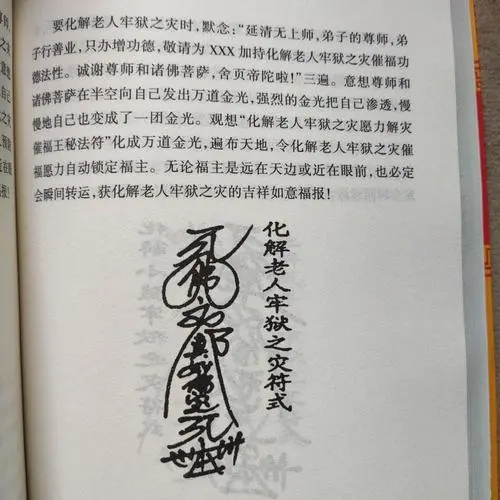 要化解老人牢狱之灾时，默念：“延清无上师，弟子的尊师，弟
子行善业，只办增功德，敬请为 XXX 加持化解老人牢狱之灾催福功
德法性。诚谢尊师和诸佛菩萨，舍页帝陀啦！”三遍。意想尊师和
诸佛菩萨在半空向自己发出万道金光，强烈的金光把自己渗透，慢
慢地自己也变成了一团金光。观想“化解老人牢狱之灾愿力解灾
催福王秘法符”化成万道金光，遍布天地，令化解老人牢狱之灾催
福愿力自动锁定福主。无论福主是远在天边或近在眼前，也必定
会瞬间转运，获化解老人牢狱之灾的吉祥如意福报！
化解老人牢狱之灾符式